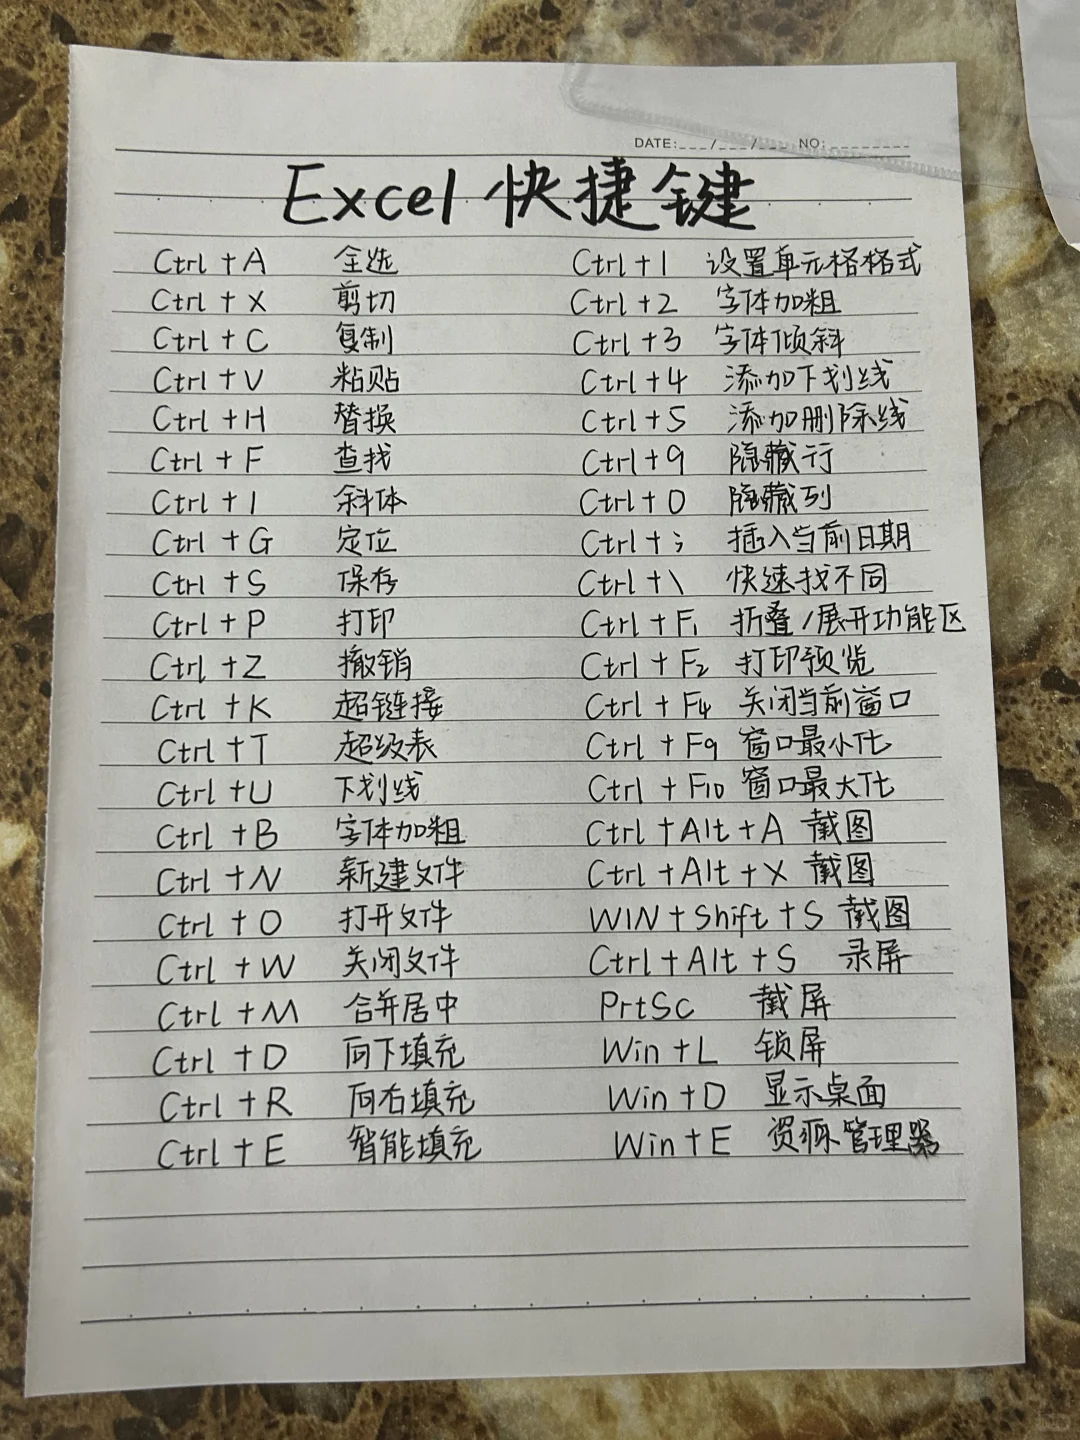 DATE:___/___/___ NO:_________
Excel 快捷键
Ctrl + A 全选 Ctrl + 1 设置单元格格式
Ctrl + X 剪切 Ctrl + 2 字体加粗
Ctrl + C 复制 Ctrl + 3 字体倾斜
Ctrl + V 粘贴 Ctrl + 4 添加下划线
Ctrl + H 替换 Ctrl + 5 添加删除线
Ctrl + F 查找 Ctrl + 9 隐藏行
Ctrl + I 斜体 Ctrl + 0 隐藏列
Ctrl + G 定位 Ctrl + ; 插入当前日期
Ctrl + S 保存 Ctrl + \ 快速找不同
Ctrl + P 打印 Ctrl + F1 折叠/展开功能区
Ctrl + Z 撤销 Ctrl + F2 打印预览
Ctrl + K 超链接 Ctrl + F4 关闭当前窗口
Ctrl + T 超级表 Ctrl + F9 窗口最小化
Ctrl + U 下划线 Ctrl + F10 窗口最大化
Ctrl + B 字体加粗 Ctrl + Alt + A 截图
Ctrl + N 新建文件 Ctrl + Alt + X 截图
Ctrl + O 打开文件 WIN + Shift + S 截图
Ctrl + W 关闭文件 Ctrl + Alt + S 录屏
Ctrl + M 合并居中 PrtSc 截屏
Ctrl + D 向下填充 Win + L 锁屏
Ctrl + R 向右填充 Win + D 显示桌面
Ctrl + E 智能填充 Win + E 资源管理器